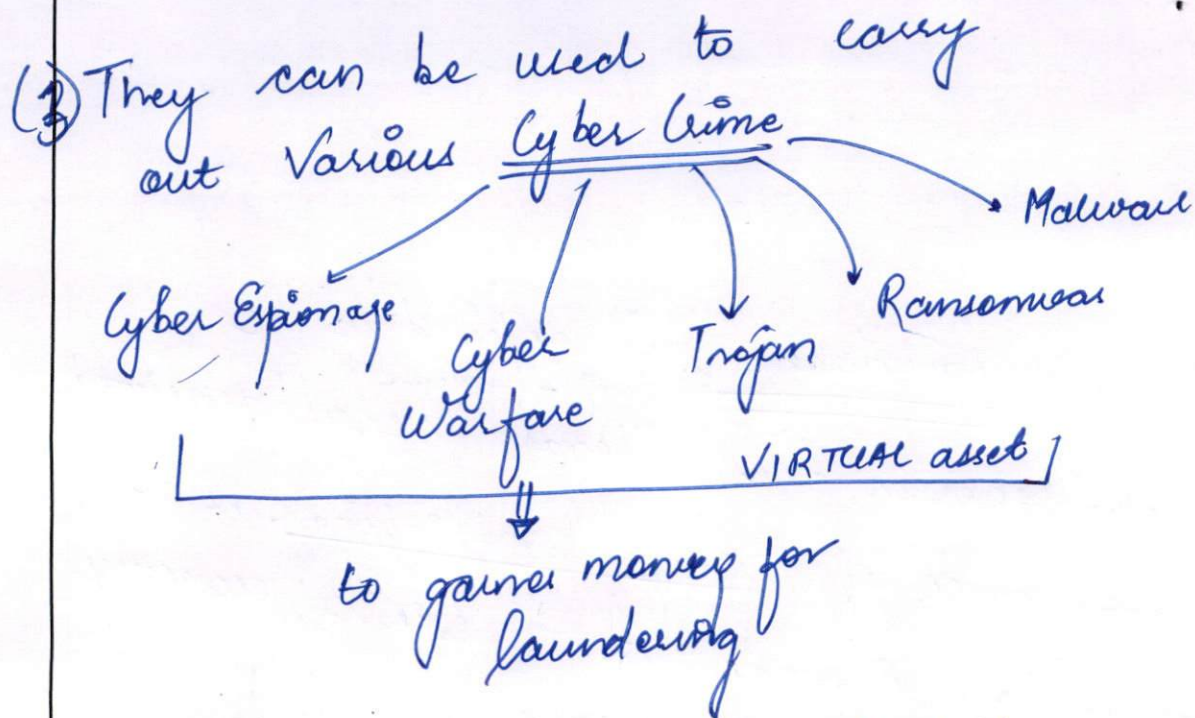 (3) They can be used to carry
out Various Cyber Crime
Malware
Cyber Espionage
Ransomwear
Cyber
Trojan
Warfare
VIRTUAL asset
to money for
laundering